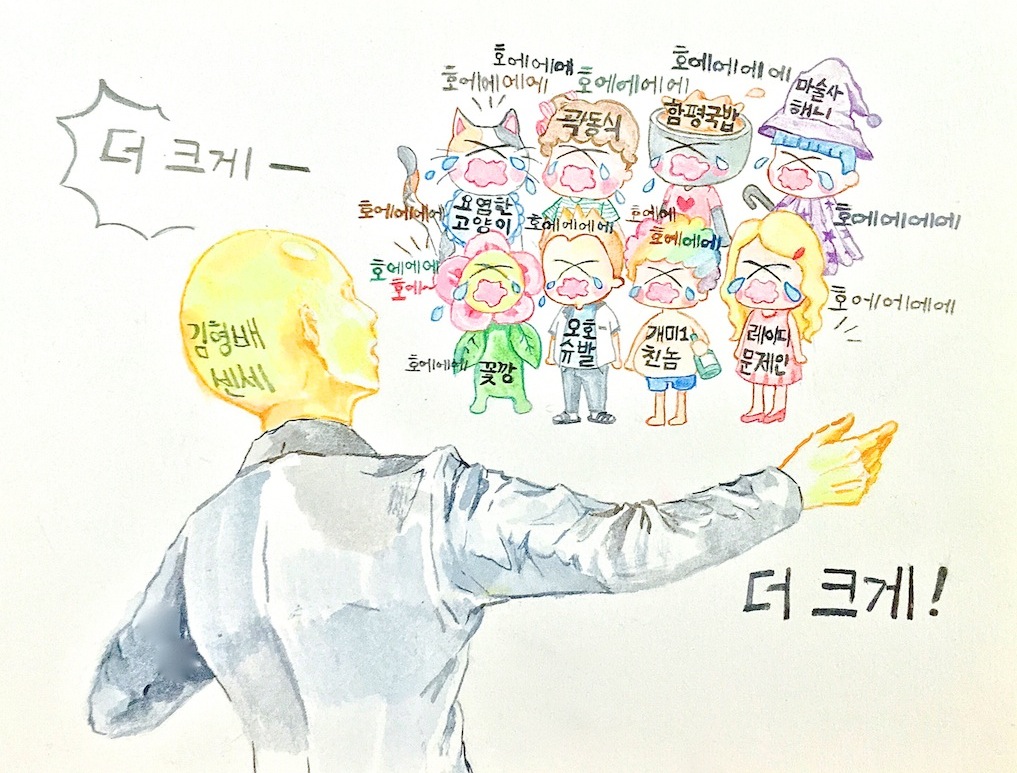 더 크게 ㅡ
호에에에
호에에에에
호에에에에
호에에에에
곽동식
함평국밥
마술사
해니
김형배
센세
요염한
고양이
호에에에에
호에에에에
호에에
호에에에
호에에에에
호에에에
호에~
호에에에에
오호
슈발
개미1
친놈
레이디
문제인
호에에에
꽃깡
더 크게!